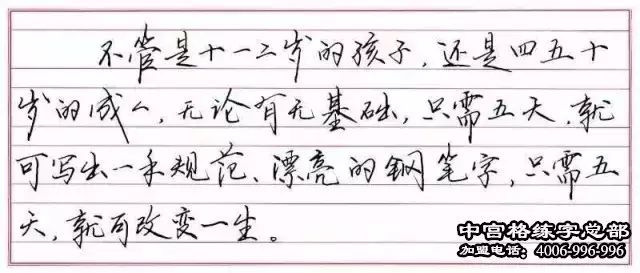 不管是十一二岁的孩子,还是四五十
岁的成人,无论有无基础,只需五天,就
可写出一手规范、漂亮的钢笔字,只需五
天,就可改变一生。
中宫格练字总部
加盟电话:4006-996-996